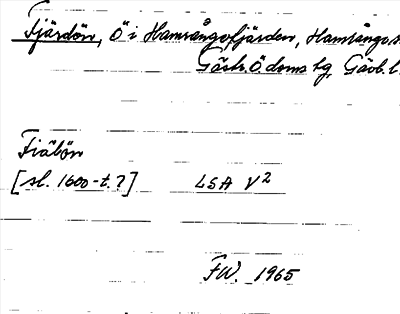 Fjärdön, Ö i Hamrångefjärden, Hamrånge s.
Gästr. Ö. doms tg, Gävb. l.
Fiäbön
[sl. 1600-t.?] LSA V²
FW. 1965